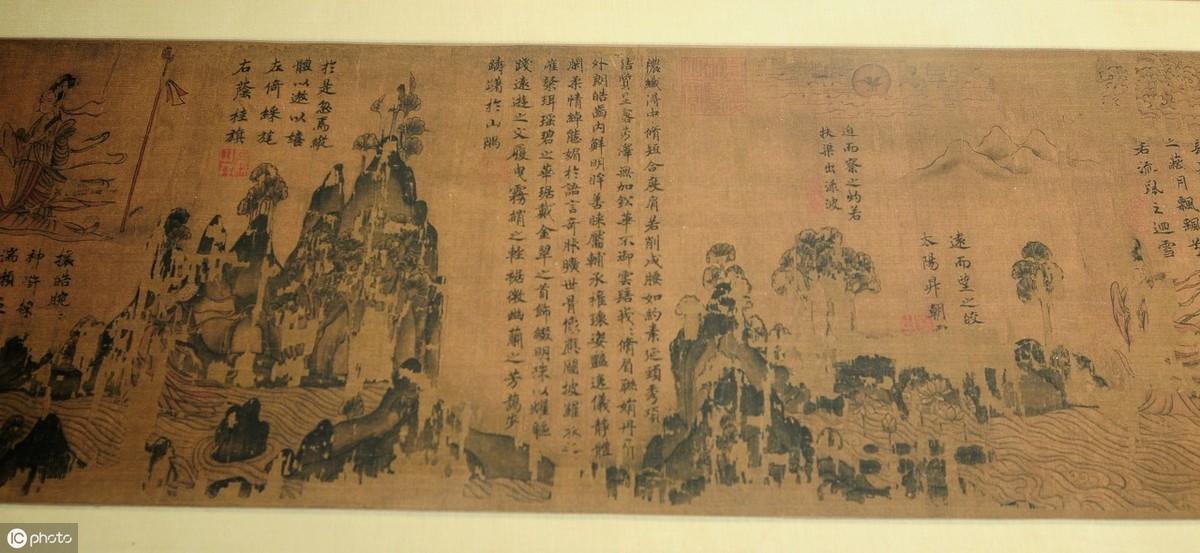 之蔽月飄颻兮
若流風之迴雪
遠而望之皎
太陽升朝
迫而察之灼若
扶渠出淥波
穠纖得中脩短合度肩若削成腰如約素延頸秀項
皓質呈露芳澤無加鈆華不御雲髻峩〻脩眉聯娟丹
外朗皓齒內鮮明眸善睞靨輔承權瓌姿豔逸儀靜體
閑柔情綽態媚於語言奇服曠世骨像應圖披羅衣
璀粲珥瑤碧之華琚戴金翠之首飾綴明珠以耀軀
踐遠遊之文履曳霧綃之輕裾微幽蘭之芳藹步
踟躕於山隅
於是忽焉縱
體以遨以嬉
左倚綵旄
右蔭桂旗
攘皓腕
神滸採
湍瀨
iC photo